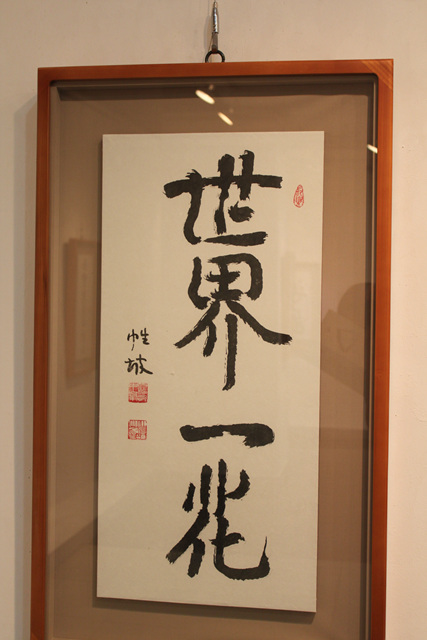 世界一花
性坡